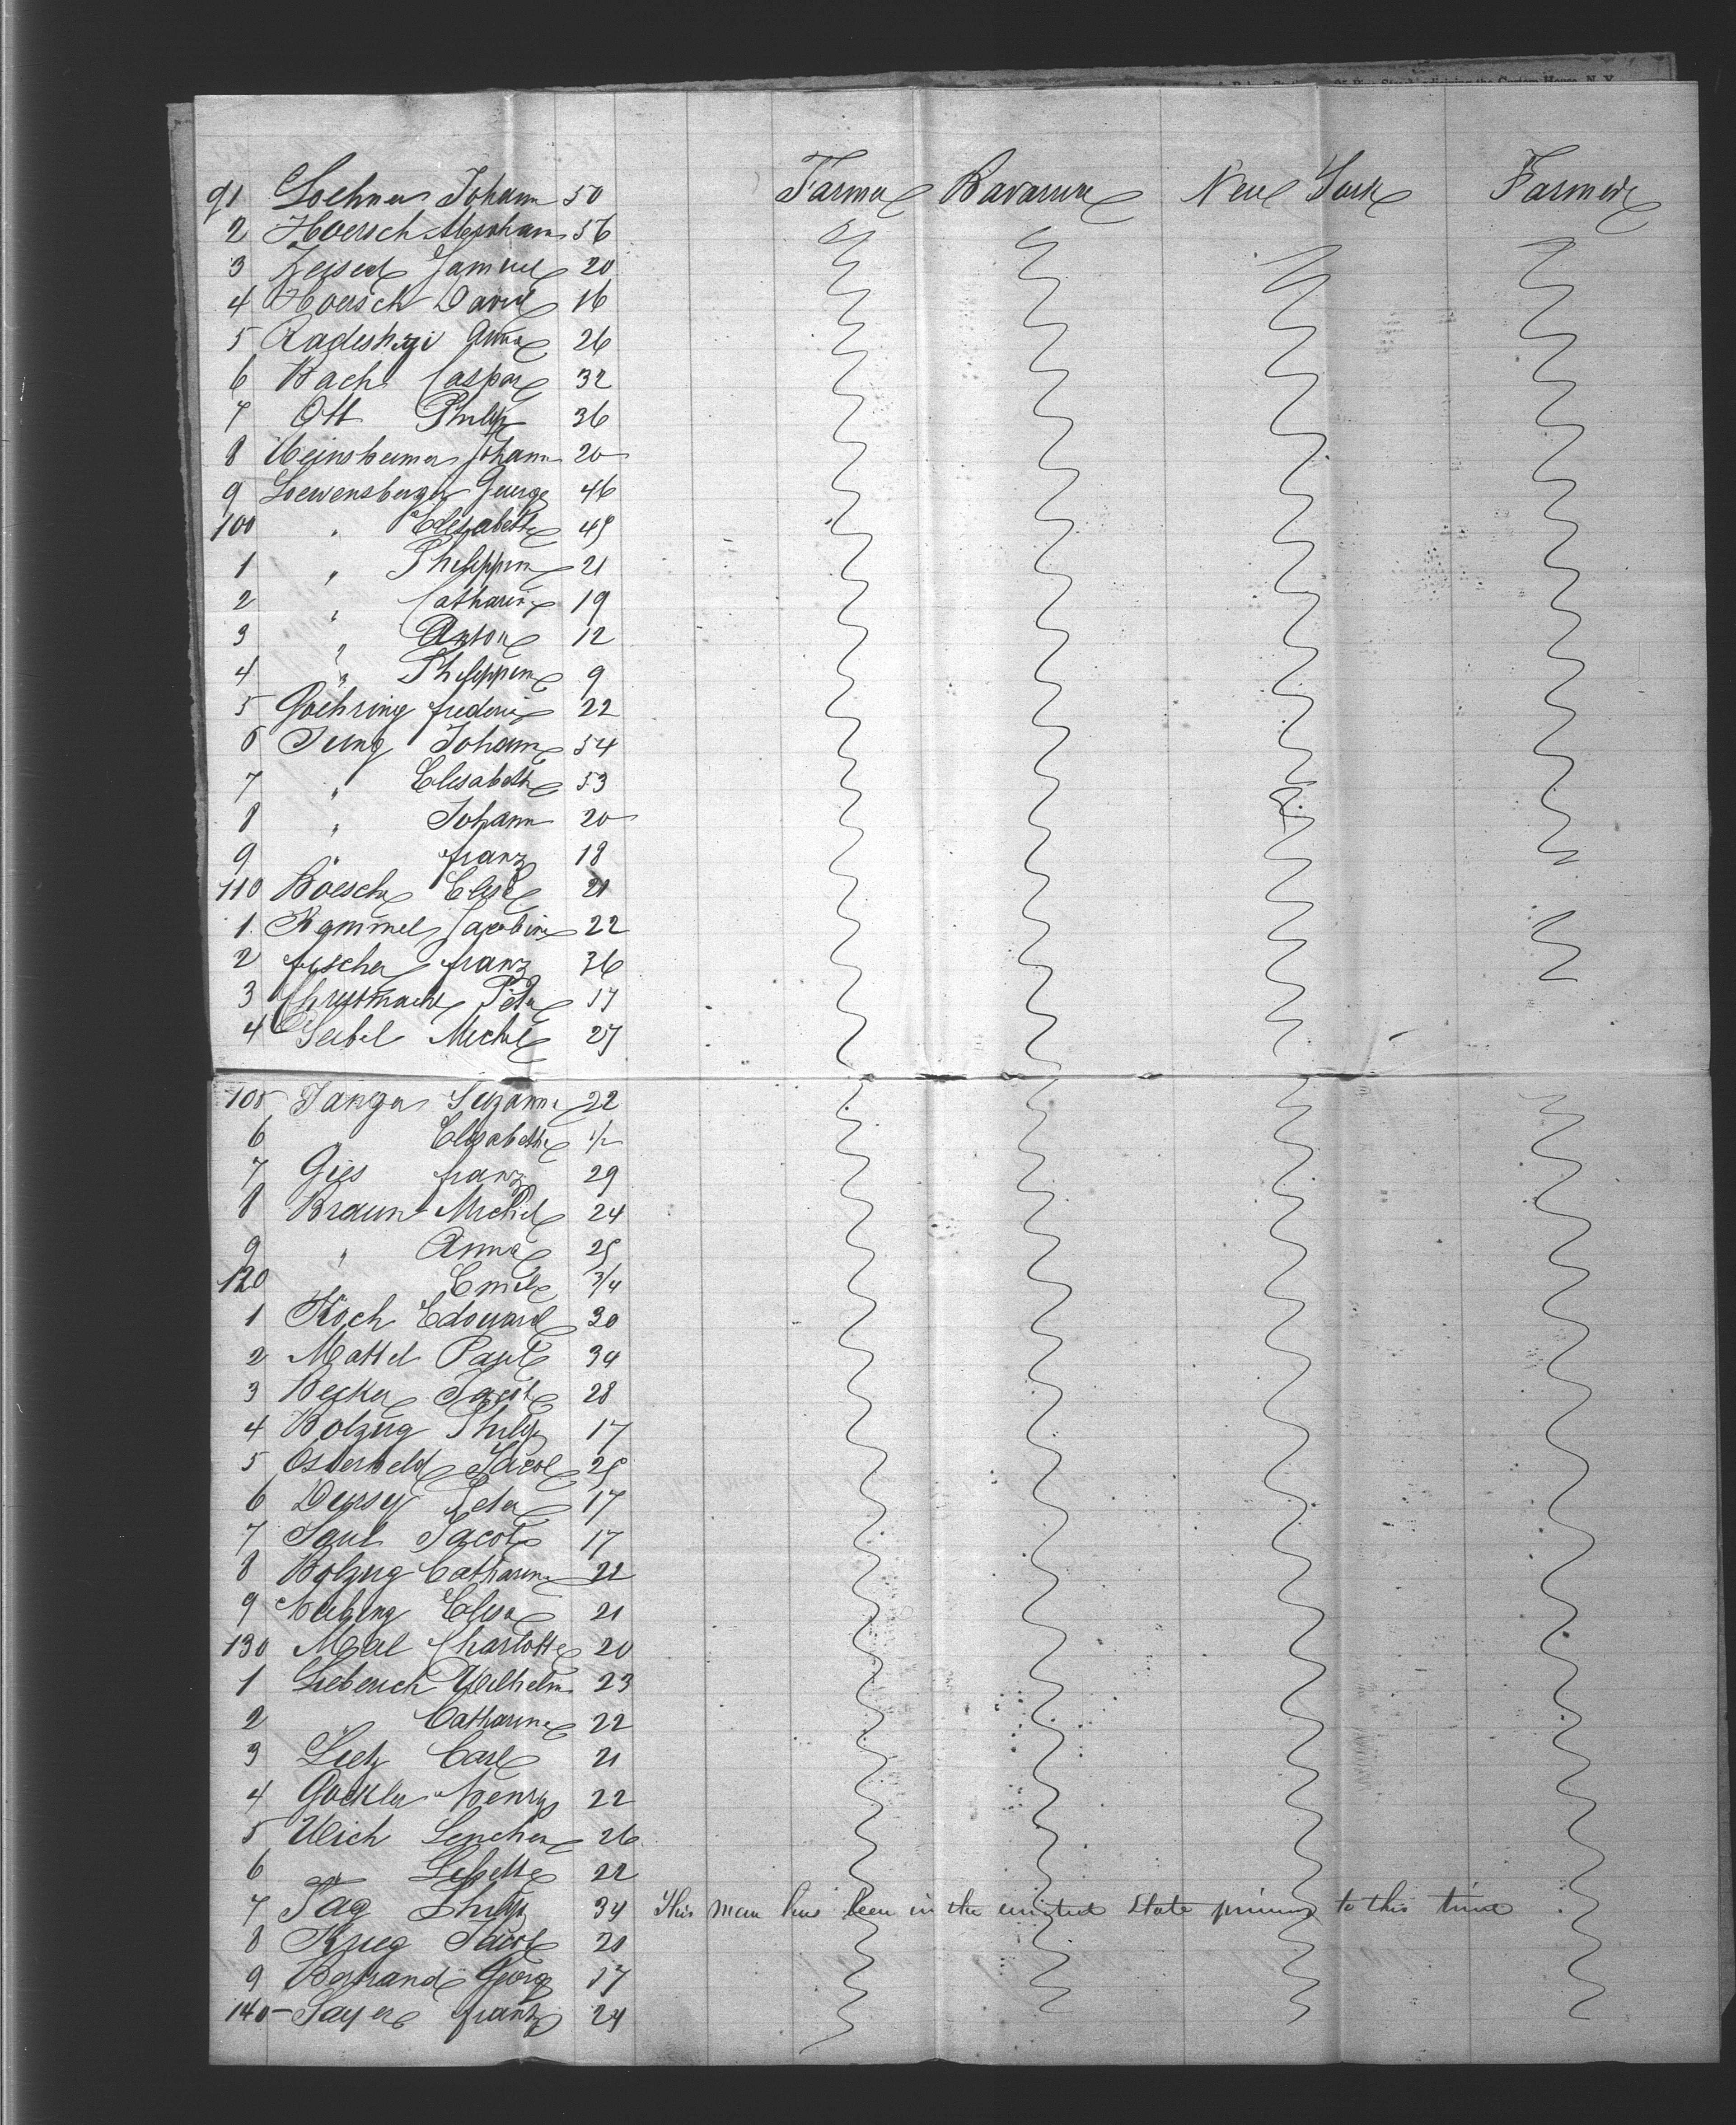 91 Loehner Johann 50 Farmer Bavaria New York Farmer
2 Hoersch Abraham 56
3 Samuel 20
4 Hoersch David 16
5 Anna 26
6 Bach Caspar 32
7 Ott Philip 36
8 Weinsheimer Johann 20
9 Loewensberger George 46
100 " Elisabeth 49
1 " Philippin 21
2 " Catharine 19
3 " Anton 12
4 " Philippine 9
5 Goehring frederic 22
6 Jung Johann 54
7 " Elisabeth 53
8 " Johann 20
9 " franz 18
110 Boesch Elise 21
1 Kammel Jacobine 22
2 fischer franz 36
3 Peter 17
4 Seibel Michel 27
105 Janger Suzanne 22
6 " Elisabeth 1/2
7 Gies franz 29
8 Braun Michel 24
9 " Anna 25
120 Emile 3/4
1 Koch Edouard 30
2 Mattel Paul 34
3 Becker Jacob 28
4 Bolzug Philip 17
5 Osterheld Jacob 25
6 Peter 17
7 Saul Jacob 17
8 Bolzug Catharine 22
9 Elisa 21
130 Charlotte 20
1 Lieberich Wilhelm 23
2 Catharine 22
3 Lietz Carl 21
4 Gockler henry 22
5 Ulich Lenchen 26
6 " Lisette 22
7 Tag Philip 34 This man has been in the united State primus to this time
8 Krieg Jacob 21
9 Bertrand Georg 17
140 Sayer frantz 24